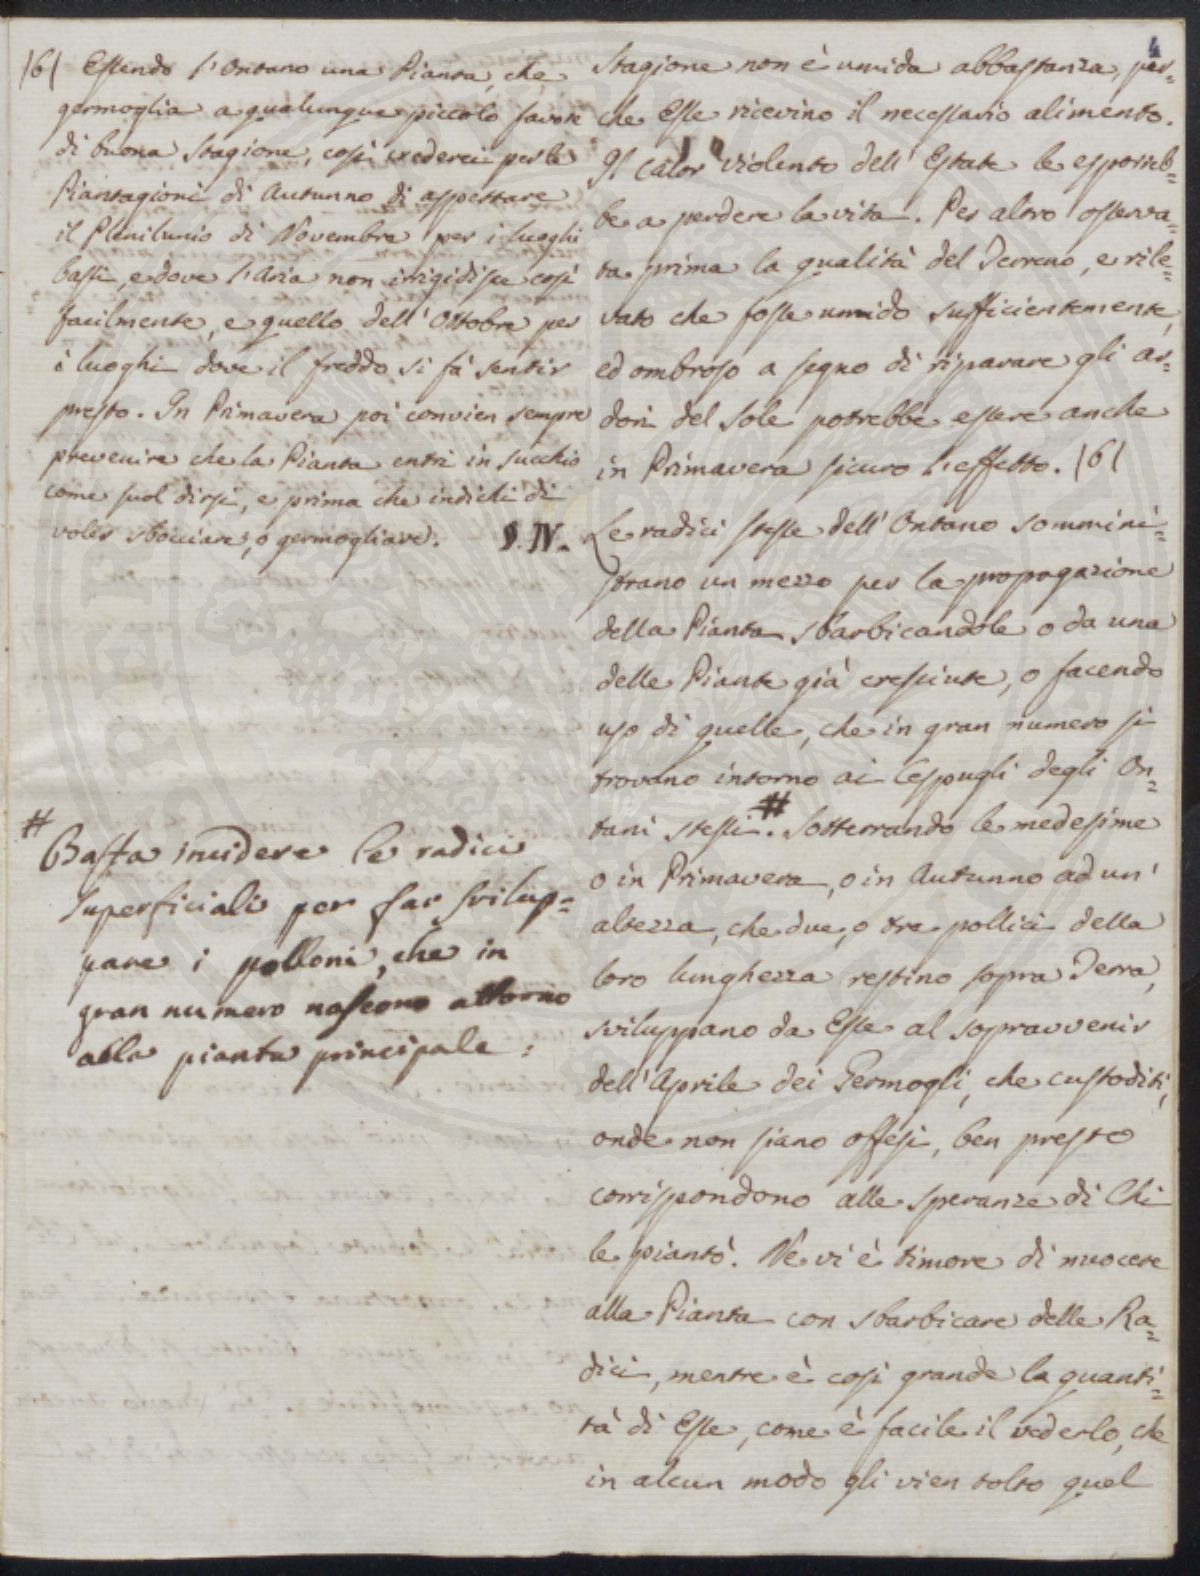 4
|6| Essendo l'Ontano una Pianta, che
germoglia a qualunque piccolo favore
di buona Stagione, così crederei per le
Piantagioni di Autunno di aspettare
il Plenilunio di Novembre per i luoghi
bassi, e dove l'Aria non irrigidisce così
facilmente, e quello dell'Ottobre per
i luoghi dove il freddo si fà sentir
presto. In Primavera poi convien sempre
prevenire che la Pianta entri in succhio
come suol dirsi, e prima che indichi di
voler sbocciare, o germogliare.
§. IV.
# Basta incidere le radici
superficiali per far svilup=
pare i polloni, che in
gran numero nascono attorno
alla pianta principale:
Stagione non è umida abbastanza, per=
che Esse ricevino il necessario alimento.
Il calor violento dell'Estate le esporreb=
be a perdere la vita. Per altro osserva=
ta prima la qualità del Terreno, e rile=
vato che fosse umido sufficientemente,
ed ombroso a segno di riparare gli ar=
dori del Sole potrebbe essere anche
in Primavera sicuro l'effetto. |6|
Le radici stesse dell'Ontano sommini=
strano un mezzo per la propagazione
della Pianta sbarbicandole o da una
delle Piante già cresciute, o facendo
uso di quelle, che in gran numero si
trovano intorno ai Cespugli degli On=
tani stessi. # Sotterrando le medesime
o in Primavera, o in Autunno ad un'
altezza, che due, o tre pollici della
loro lunghezza restino sopra Terra,
sviluppano da Esse al sopravvenir
dell'Aprile dei Germogli, che custoditi,
onde non siano offesi, ben presto
corrispondono alle speranze di Chi
le piantò. Nè vi è timore di nuocere
alla Pianta con sbarbicare delle Ra=
dici, mentre è così grande la quanti=
tà di Esse, come è facile il vederlo, che
in alcun modo gli vien tolto quel